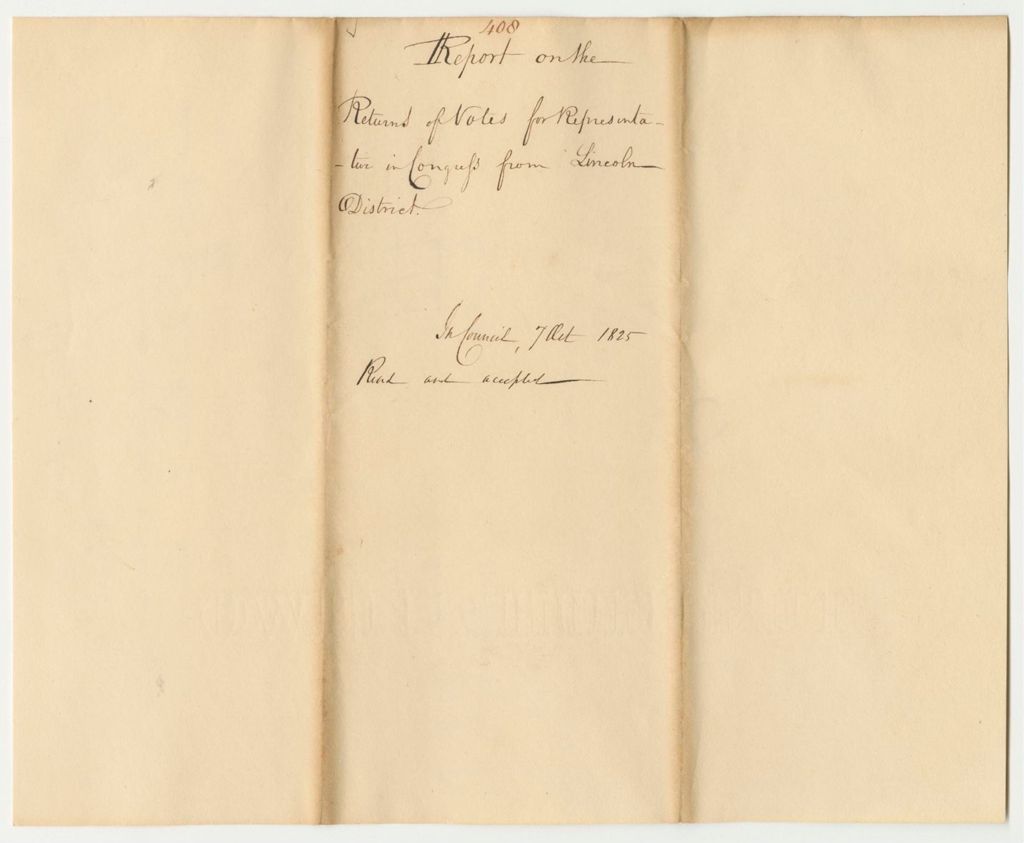 408
Report on the
Returns of Votes for Representa-
-tive in Congress from Lincoln
District.
In Council, 7 Oct 1825
Read and accepted